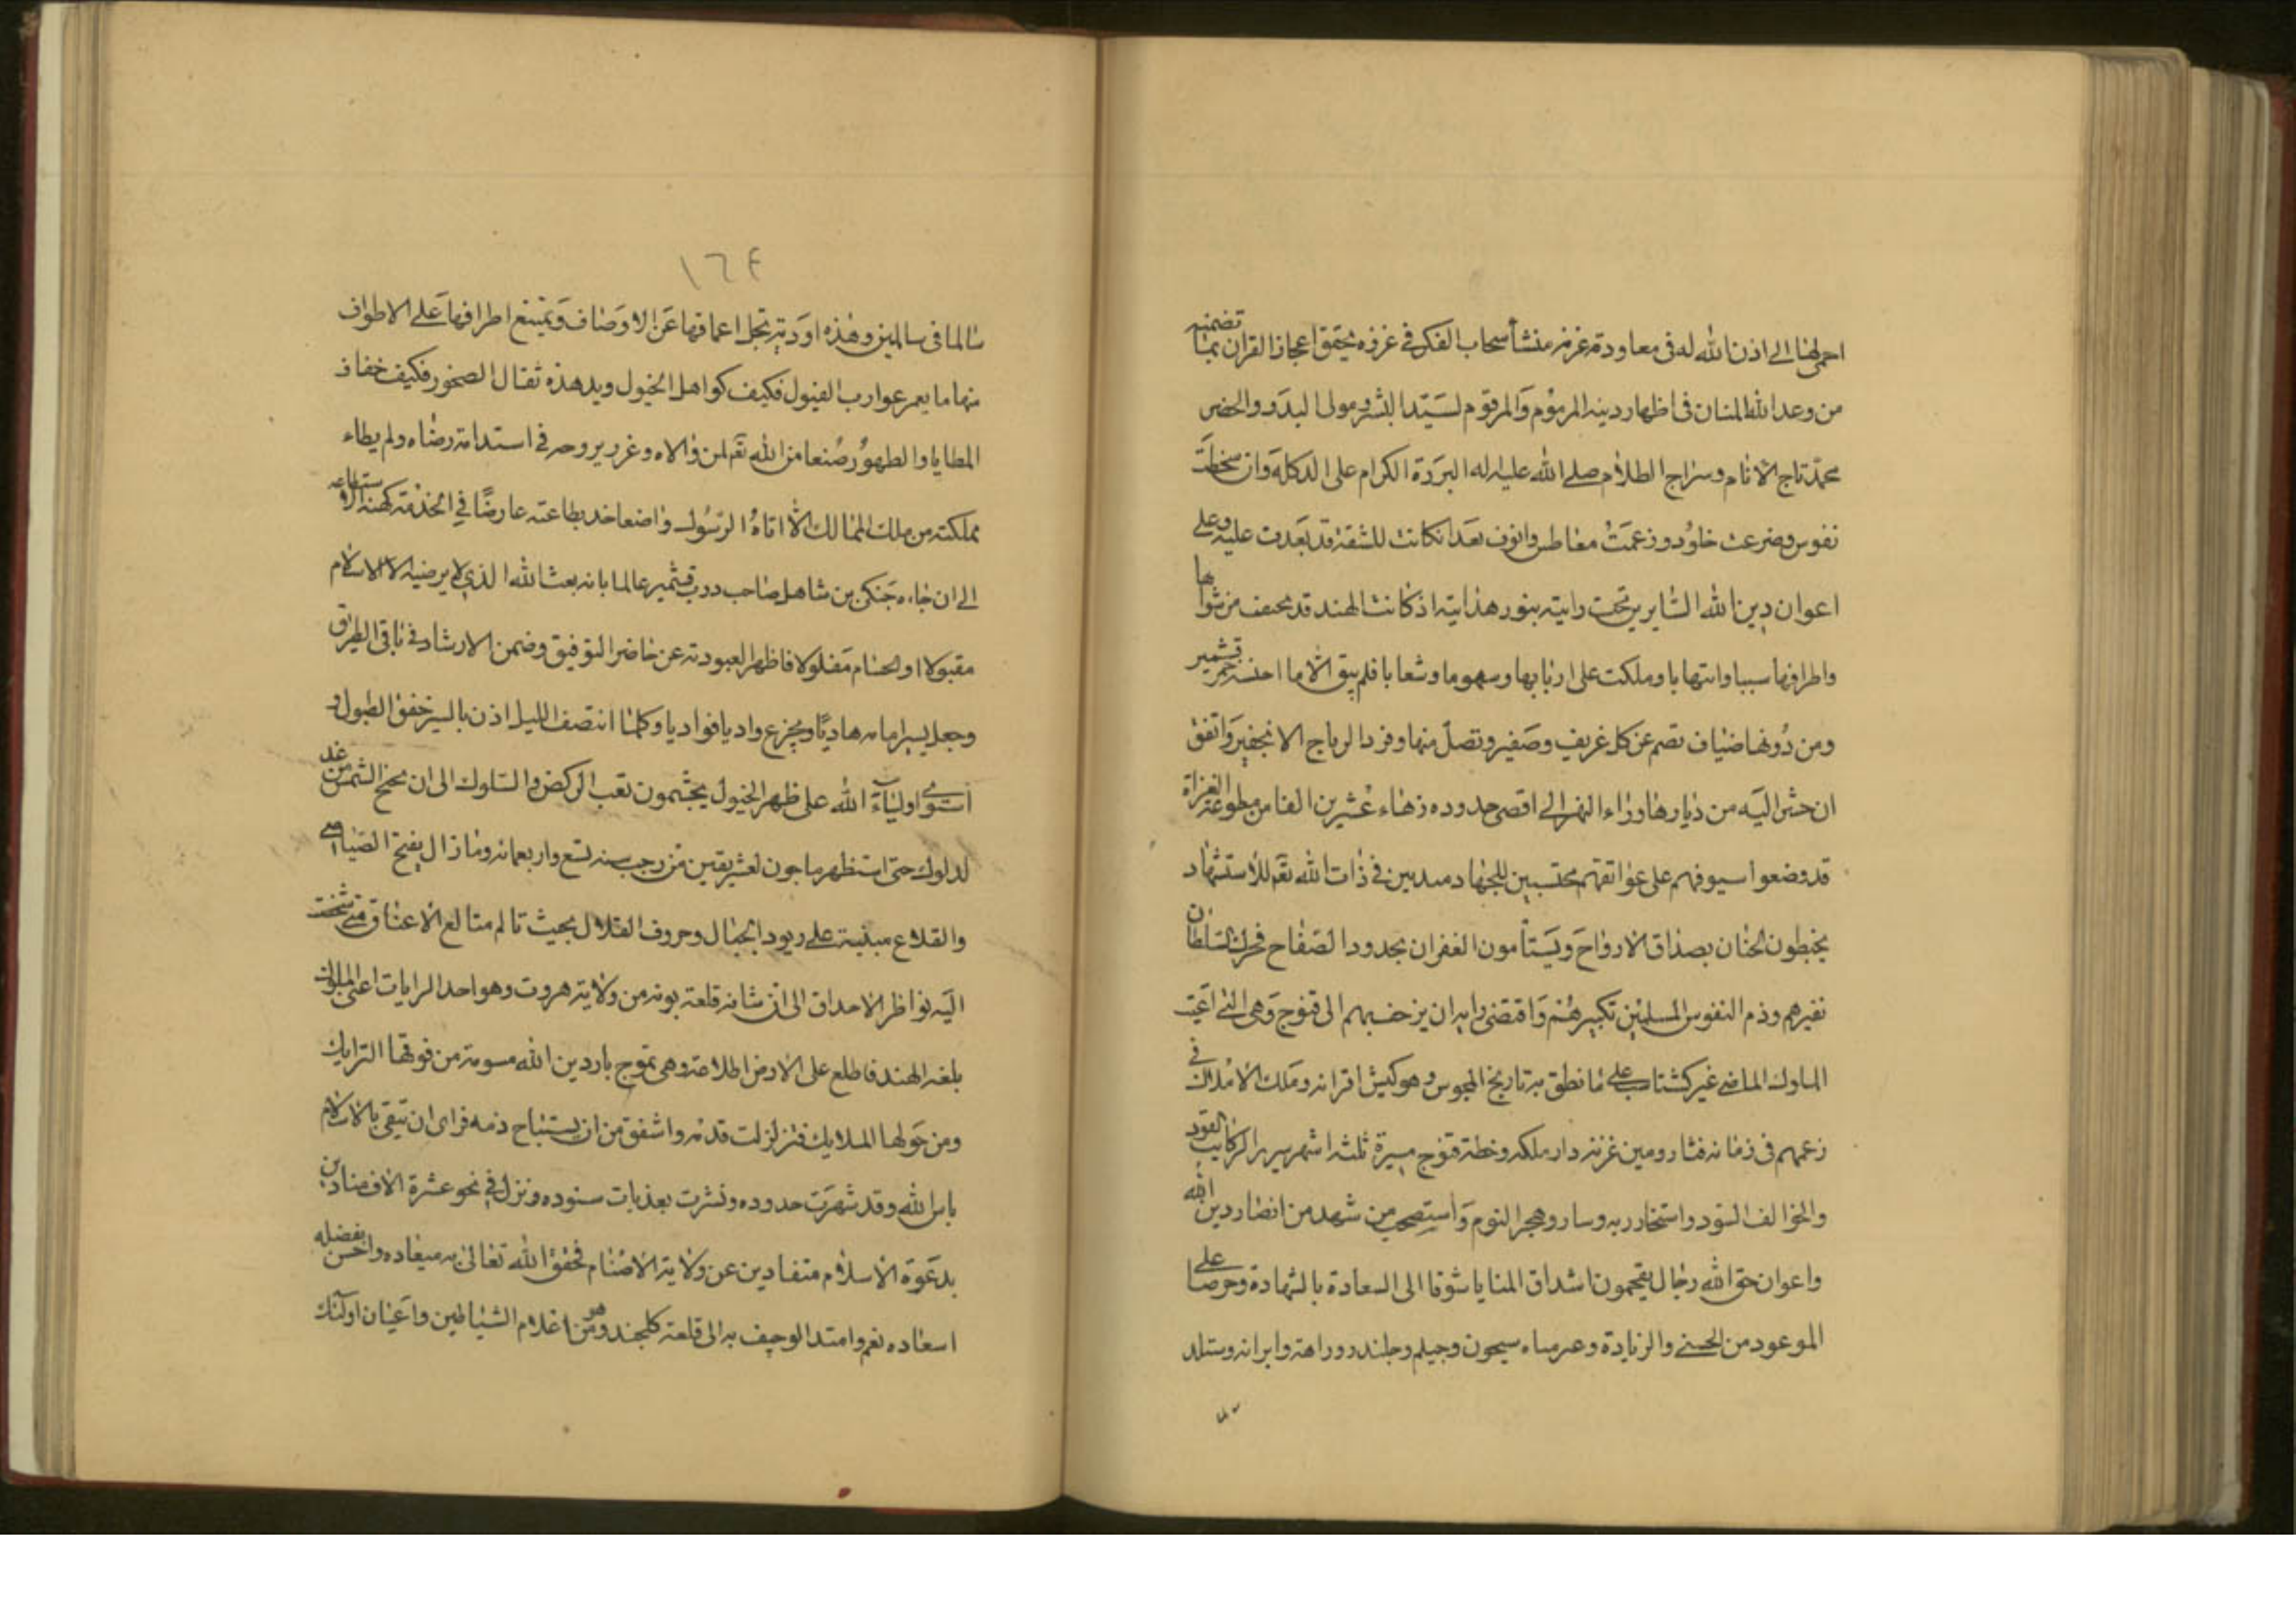 الى اذن الله له فى معاودة غزنه منشأ سحاب الفكر فى غزوه يحقق اعجاز القران بما تضمنه
من وعد الله المنان فى اظهار دينه المرموم والمرقوم لسيد البشر ومولى البدو والحضر
محمد تاج الانام وسراج الظلام صلى الله عليه اله البررة الكرام على الدكله وان سخطت
نفوس وضرعت خدود وزعمت معاطس وانوف بعد ان كانت للشقة قد بعدت عليه وعلى
اعوان دين الله السايرين تحت رايته بنور هدايته اذ كانت الهند قد من شواها
واطرافها سببا وانتهابا وملكت على اربابها وسهوما وشعابا فلم يبق الا ما قشمير
ومن دونها ضياف تصم عن كل غريف وصفير وتصل منها وفر الرياح الا بخفير واتفق
ان حشر اليه من ديار ما وراء النهر الى اقصى حدوده زهاء عشرين الفا من مطوعة الغزاة
قد وضعوا سيوفهم على عواتقهم محتسبين للجهاد فى ذات الله تع للاستشهاد
يخبطون الجنان بصداق الارواح ويستأمون الغفران بحدود الصفاح فحرك السلطان
نفيرهم وذم النفوس المسلمين تكبيرهم واقتضى رايه ان يزحف بهم الى قنوج وهى التى اعيت
الملوك الماضى غير كشتاسب على ما نطق به تاريخ المجوس وهو كيش اقرانه وملك الاملاك فى
زعمهم فى زمانه فسار ومين غزنه دار ملكه وخطة قنوج مسيرة ثلثه اشهر بسير الركائب القود
والخوالف السود واستخار ربه وسار وهجر النوم واستصحب من شهد من انصار دين الله
واعوان حق الله رجال يقحمون اشداق المنايا شوقا الى السعادة بالشهادة وحرصا على
الموعود من الحسنى والزيادة وعبر مياه سيحون وجيلم وجلند وراهه وايرانه وستلد
١٦٤
سالما فى سالمين وهذه اودية تجل اعماقها عن الاوصاف وتمتنع اطرافها على الاطواف
منها ما يغمر غوارب الفيول فكيف كواهل الخيول ويدهده ثقال الصخور فكيف خفاف
المطايا والظهور صنعا من الله تع لمن والاه وغرر بروحه فى استدامة رضاه ولم يطاء
مملكته من ملك الممالك الا اتاه الرسول واضعا خد بطاعته عارضا فى الخدمة كهنه استطاعته
الى ان جاءه جنكى بن شاهى صاحب درب قشمير عالما بانه بعث الله الذى لا يرضيه الا الاسلام
مقبولا او الحسام مفلولا فاظهر العبودية عن حاضر التوفيق وضمن الارشاد فى باقى الطريق
وجعل يسير امامه هاديا ويجزع واديا فواديا وكلما انتصف الليل اذن بالسير خفق الطبول و
استوى اولياء الله على ظهر الخيول يجشمون تعب الركض والسلوك الى ان تجنح الشمس من غد
لدلوك حتى استظهر ماجون لعشر بقين من رجب سنه تسع واربعمائه وما زال يفتح الصياصى
والقلاع مبنية على ريود الجبال وحروف القلال بحيث تالم متالع الاعناق متى شخصت
اليه نواظر الاحداق الى ان شانه قلعة بونه من ولاية هروت وهو احد الرايات اعنى الملوك
بلغه الهند فاطلع على الارض اطلاعة وهى تموج باردين الله مسومة من فوقها الترايك
ومن حولها الملايك فتزلزلت قدمه واشفق من ان يستباح ذمه فراى ان تيقى بالاسلام
باس الله وقد شهرت حدوده ونشرت بعذبات سنوده ونزل فى نحو عشرة الاف منادين
بدعوة الاسلام متفادين عن ولاية الاصنام فحقق الله تعالى به ميعاده واحسن بفضله
اسعاده نعم وامتد الوجيف به الى قلعة كلجند وهو من اعلام الشياطين واعيان اولئك